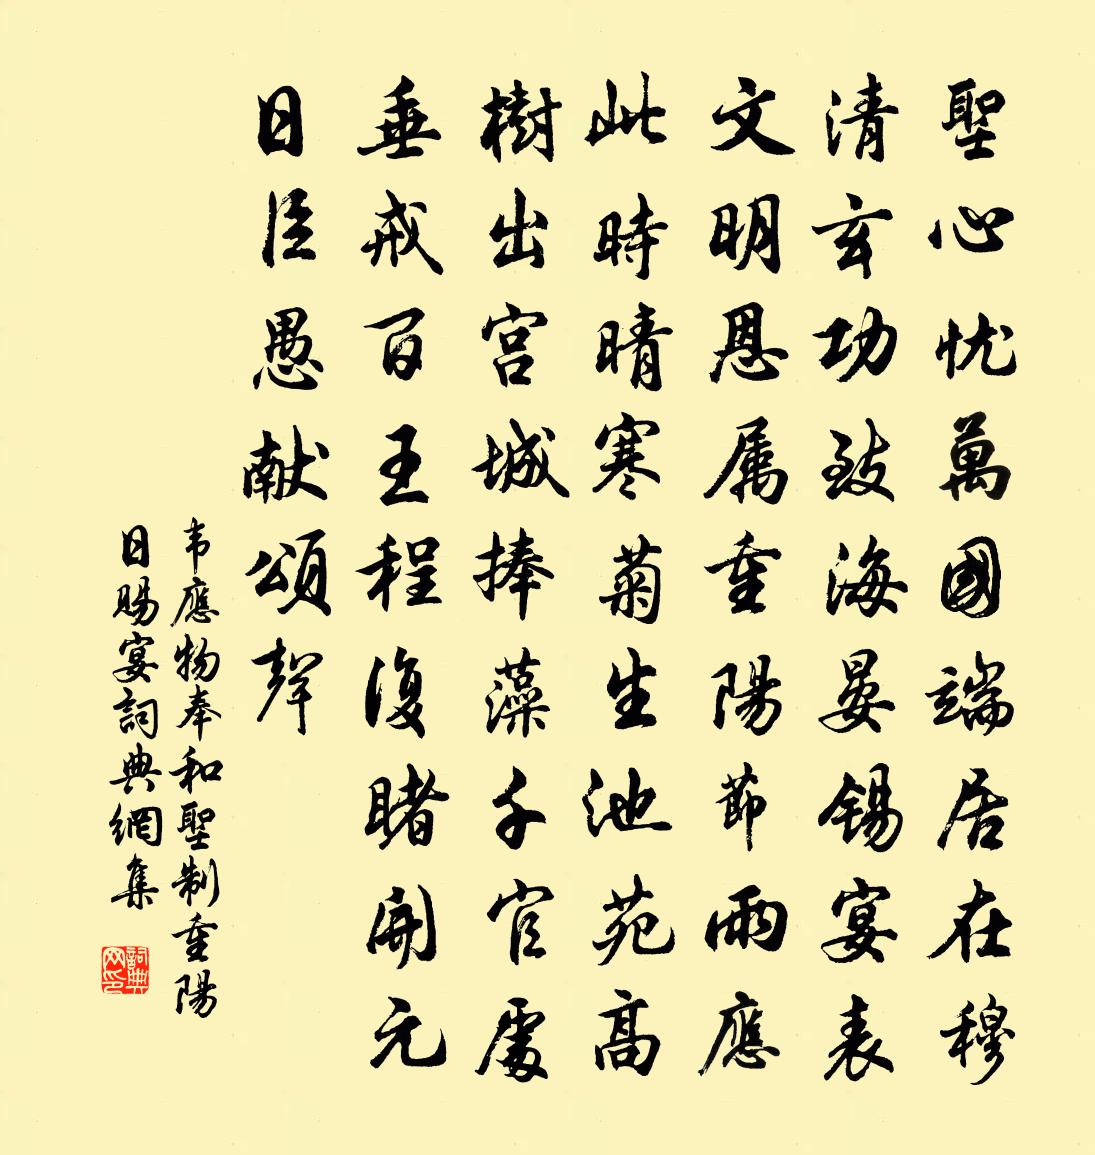 聖心忧萬國端居在穆
清玄功致海晏錫宴表
文明恩属重陽節雨應
此時晴寒菊生池苑高
樹出宫城捧藻千官處
垂戒百王程復睹開元
日臣愚献頌聲
韦應物奉和聖制重陽
日賜宴詞典網集
詞典网印